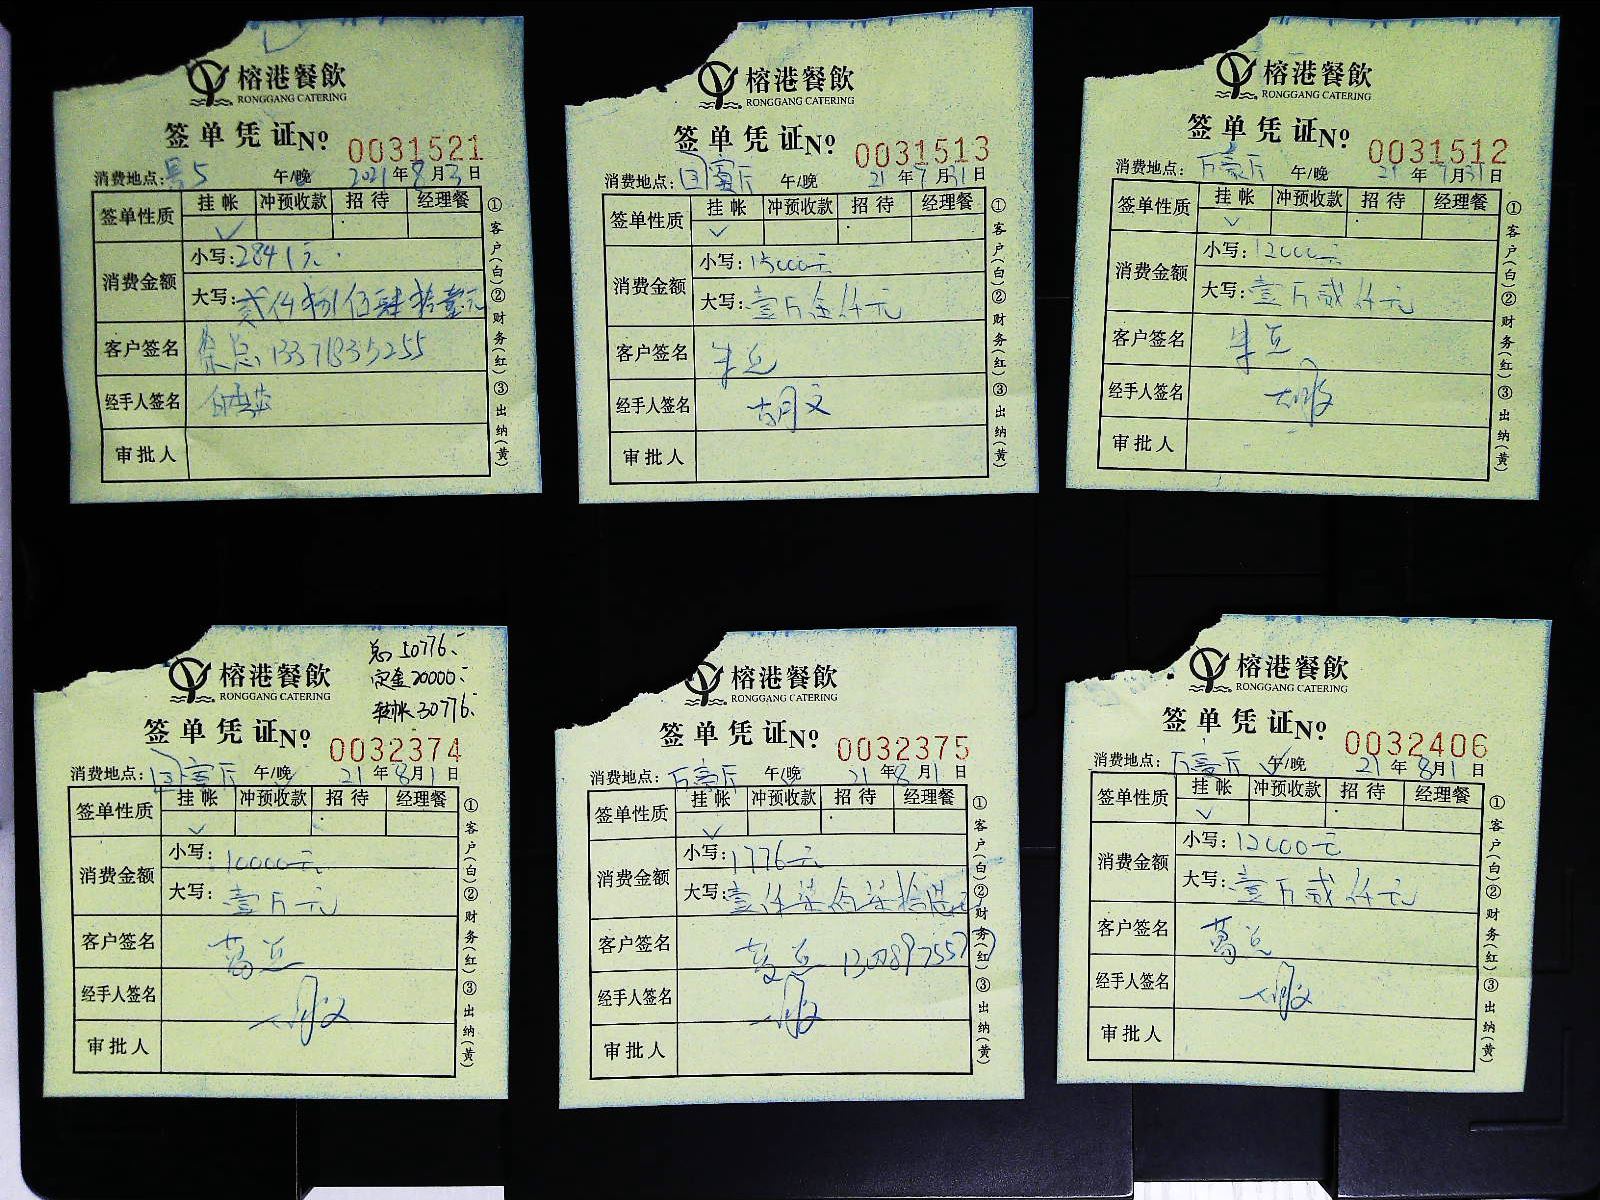 榕港餐飲
RONGGANG CATERING
签单凭证№ 0031521
消费地点: 5 午/晚 2021年8月3日
签单性质 挂帐 冲预收款 招待 经理餐
✓
消费金额 小写:2841元
大写:贰仟捌佰肆拾壹元
客户签名 总
经手人签名
审批人
①客户(白)②财务(红)③出纳(黄)
榕港餐飲
RONGGANG CATERING
签单凭证№ 0031513
消费地点: 国宴厅 午/晚 21年7月31日
签单性质 挂帐 冲预收款 招待 经理餐
✓
消费金额 小写:15000元
大写:壹万伍仟元
客户签名 朱总
经手人签名 胡文
审批人
①客户(白)②财务(红)③出纳(黄)
榕港餐飲
RONGGANG CATERING
签单凭证№ 0031512
消费地点: 万豪厅 午/晚 21年7月31日
签单性质 挂帐 冲预收款 招待 经理餐
✓
消费金额 小写:12000元
大写:壹万贰仟元
客户签名 朱总
经手人签名
审批人
①客户(白)②财务(红)③出纳(黄)
总50776.
定金20000.
转帐30776.
榕港餐飲
RONGGANG CATERING
签单凭证№ 0032374
消费地点: 国宴厅 午/晚 21年8月1日
签单性质 挂帐 冲预收款 招待 经理餐
✓
消费金额 小写:10000元
大写:壹万元
客户签名 葛总
经手人签名
审批人
①客户(白)②财务(红)③出纳(黄)
榕港餐飲
RONGGANG CATERING
签单凭证№ 0032375
消费地点: 万豪厅 午/晚 21年8月1日
签单性质 挂帐 冲预收款 招待 经理餐
✓
消费金额 小写:1776元
大写:壹仟柒佰柒拾陆元
客户签名 总
经手人签名
审批人
①客户(白)②财务(红)③出纳(黄)
榕港餐飲
RONGGANG CATERING
签单凭证№ 0032406
消费地点: 万豪厅 午/晚 21年8月1日
签单性质 挂帐 冲预收款 招待 经理餐
✓
消费金额 小写:12000元
大写:壹万贰仟元
客户签名 葛总
经手人签名
审批人
①客户(白)②财务(红)③出纳(黄)